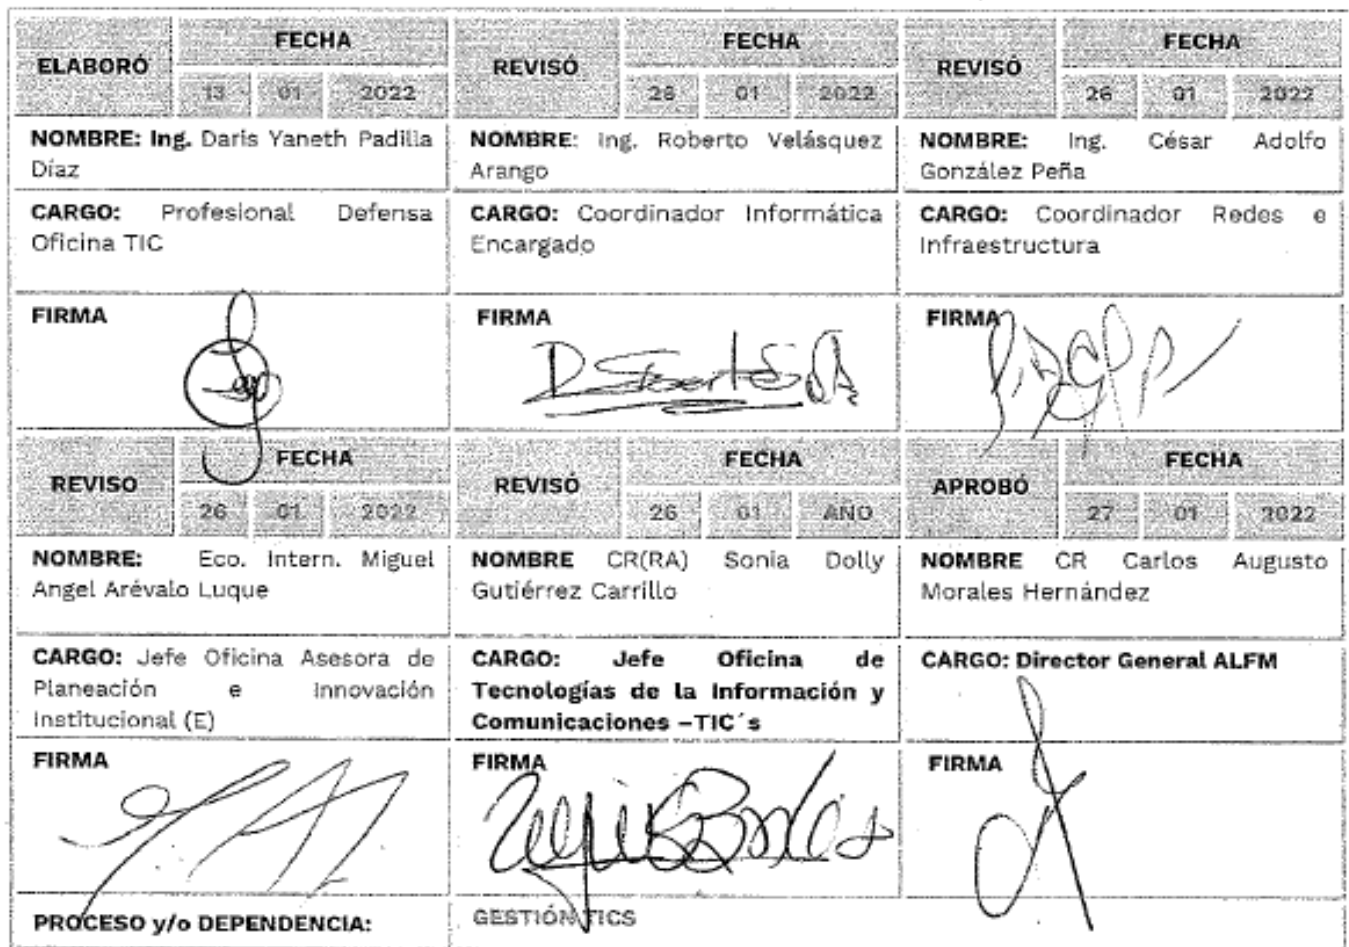 ELABORÓ
FECHA
13 01 2022
REVISÓ
FECHA
26 01 2022
REVISÓ
FECHA
26 01 2022
NOMBRE: Ing. Daris Yaneth Padilla
Díaz
NOMBRE: Ing. Roberto Velásquez
Arango
NOMBRE: Ing. César Adolfo
González Peña
CARGO: Profesional Defensa
Oficina TIC
CARGO: Coordinador Informática
Encargado
CARGO: Coordinador Redes e
Infraestructura
FIRMA
FIRMA
FIRMA
REVISO
FECHA
26 01 2022
REVISÓ
FECHA
26 01 AÑO
APROBÓ
FECHA
27 01 2022
NOMBRE: Eco. Intern. Miguel
Angel Arévalo Luque
NOMBRE CR(RA) Sonia Dolly
Gutiérrez Carrillo
NOMBRE CR Carlos Augusto
Morales Hernández
CARGO: Jefe Oficina Asesora de
Planeación e Innovación
Institucional (E)
CARGO: Jefe Oficina de
Tecnologías de la Información y
Comunicaciones –TIC´s
CARGO: Director General ALFM
FIRMA
FIRMA
FIRMA
PROCESO y/o DEPENDENCIA:
GESTIÓN TICS